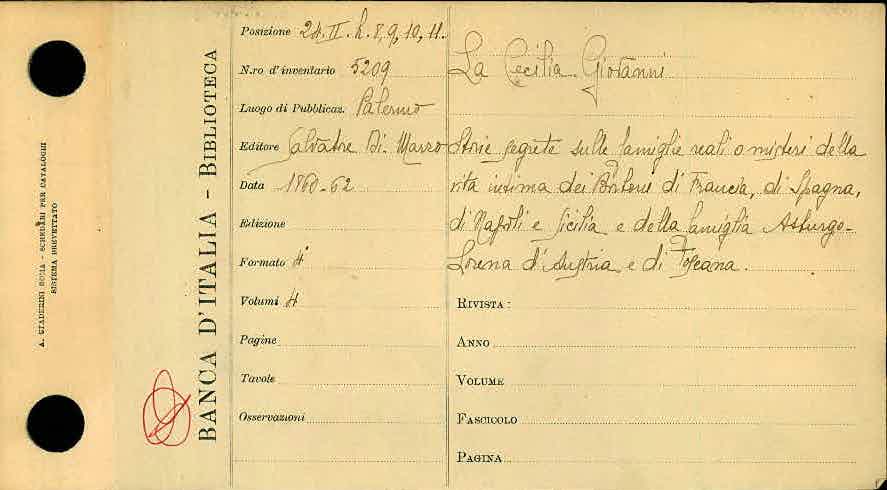 A. STADERINI ROMA - SCHEDARI PER CATALOGHI
SISTEMA BREVETTATO
BANCA D'ITALIA - BIBLIOTECA
Posizione 24. II. h. 8, 9, 10, 11.
N.ro d'inventario 5209
Luogo di Pubblicaz. Palermo
Editore Salvatore Di Marzo
Data 1860-62
Edizione
Formato 4°
Volumi 4
Pagine
Tavole
Osservazioni
La Cecilia Giovanni
Storie segrete sulle famiglie reali o misteri della
vita intima dei Borboni di Francia, di Spagna,
di Napoli e Sicilia e della famiglia Asburgo-
Lorena d'Austria e di Toscana.
RIVISTA:
ANNO
VOLUME
FASCICOLO
PAGINA